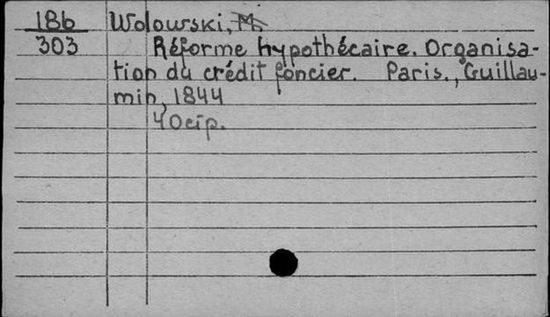 186 Wolowski, M.
303 Réforme hypothécaire. Organisa-
tion du crédit foncier. Paris., Guillau-
min, 1844
40 cip.